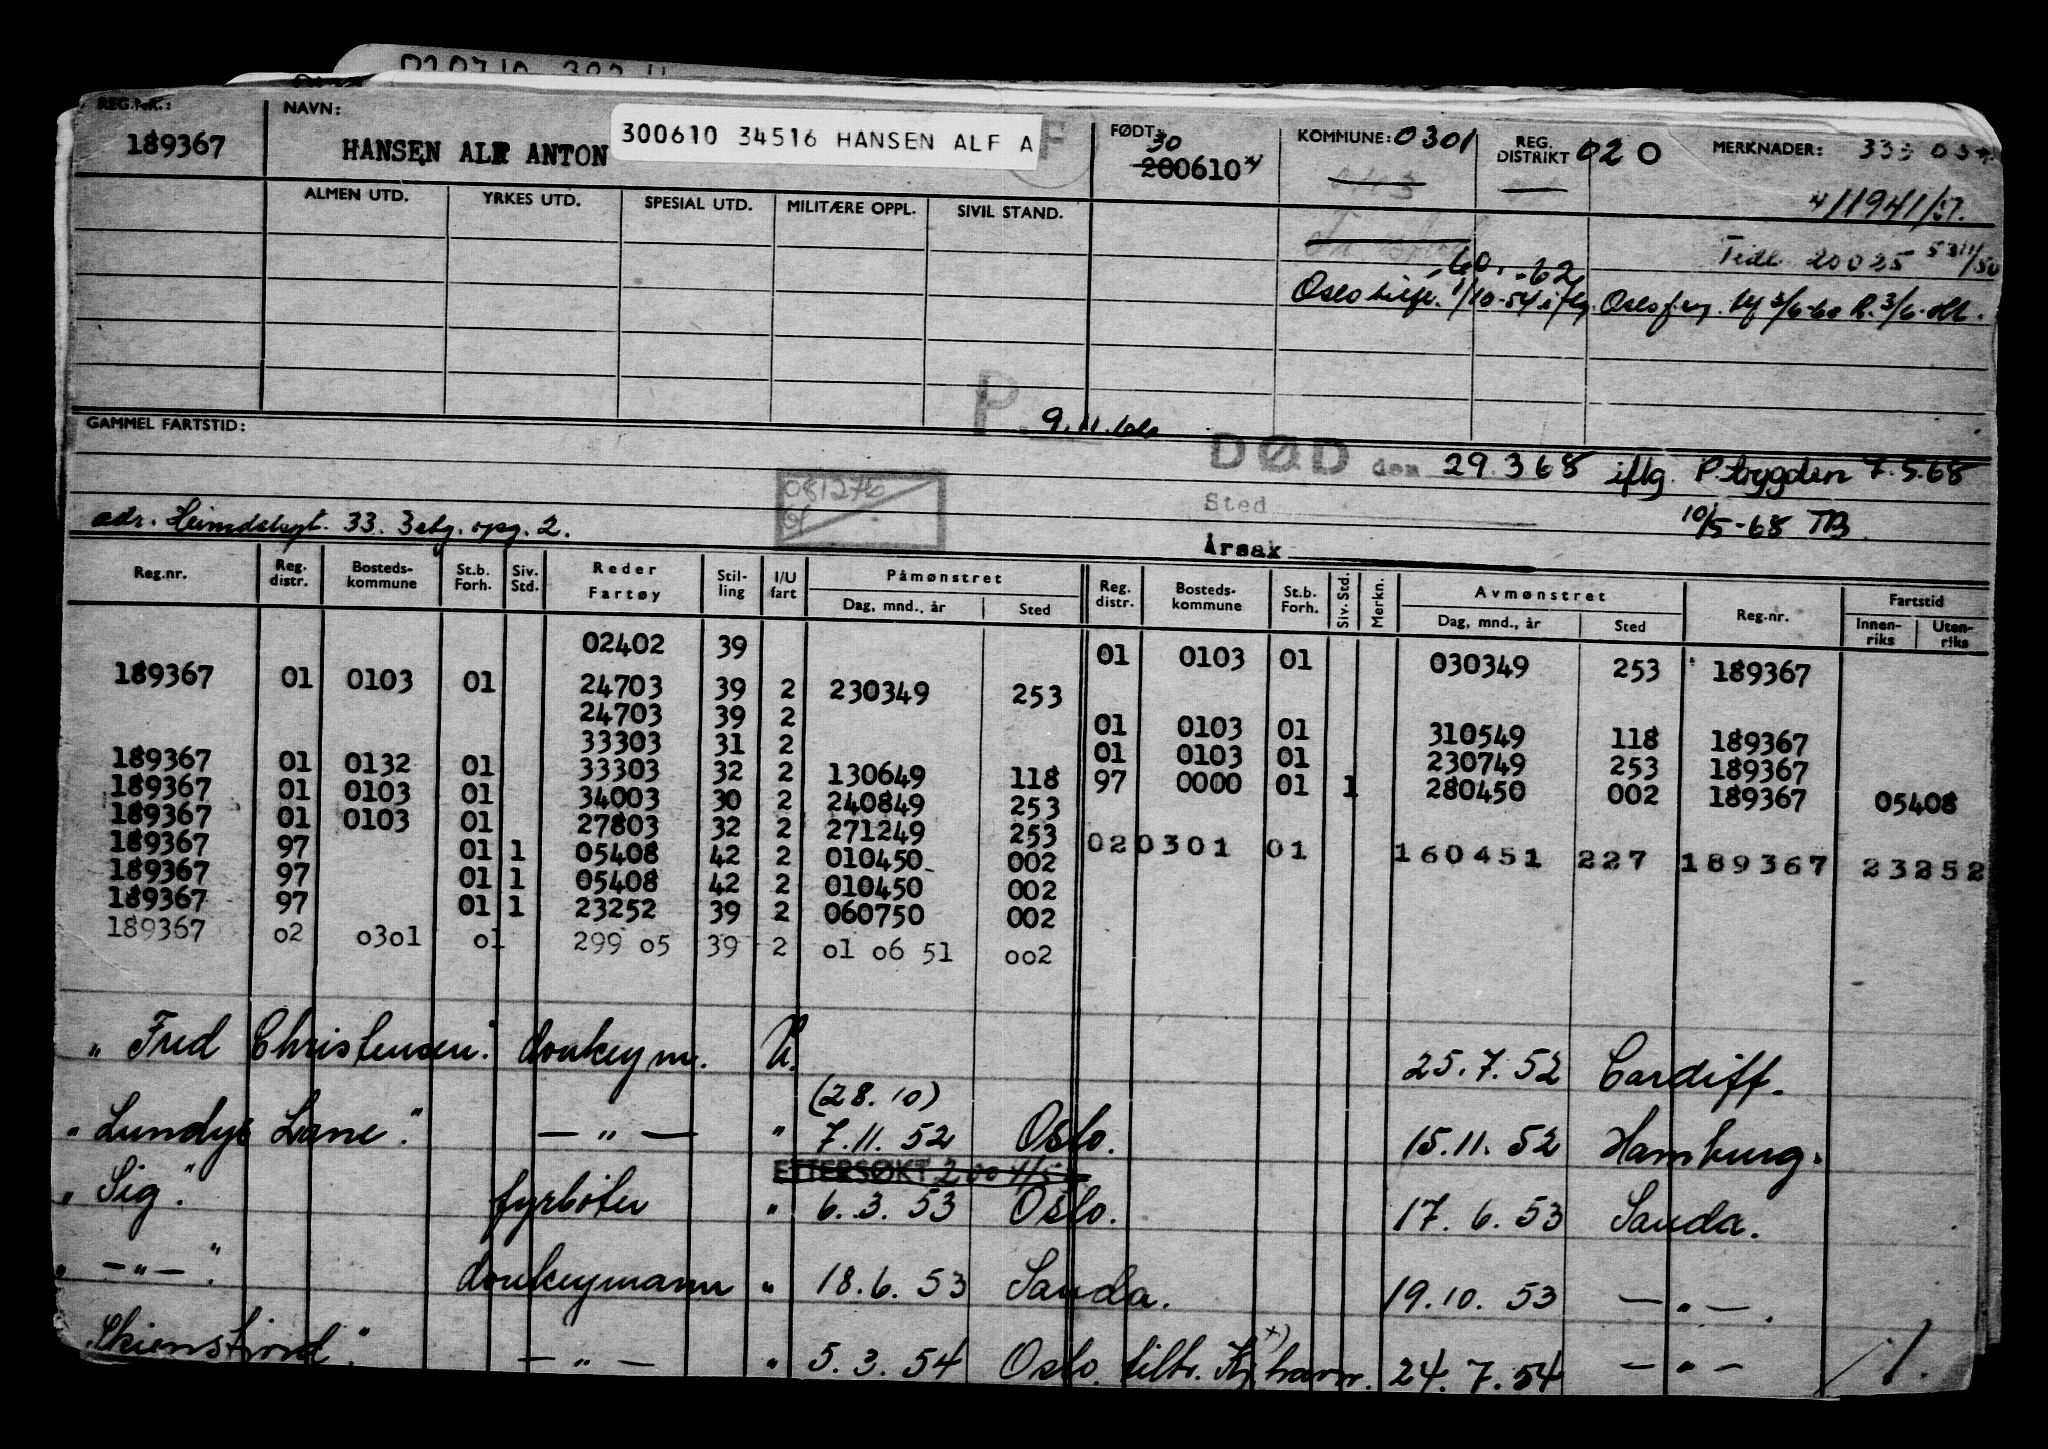 REG.NR.: NAVN: FØDT KOMMUNE: 0301 REG. DISTRIKT 02 0 MERKNADER:
189367 HANSEN ALF ANTON 300610 34516 HANSEN ALF A 30 200610
4/11941/57.
ALMEN UTD. YRKES UTD. SPESIAL UTD. MILITÆRE OPPL. SIVIL STAND.
Tidl. 20025
-60, -62
1/10-54 3/6-60
P. 9.11.66
GAMMEL FARTSTID:
DØD den 29.3 68 iflg. P.trygden 7.5.68
081276
Sted
10/5-68 TB
adr. Heimdalsgt. 33. 3 etg. opg. 2.
Årsak
Reg.nr. Reg. distr. Bosteds-kommune St.b. Forh. Siv. Std. Reder Fartøy Stil-ling I/U fart Påmønstret Dag, mnd., år Sted Reg. distr. Bosteds-kommune St.b. Forh. Siv. Std. Merkn. Avmønstret Dag, mnd., år Sted Reg.nr. Fartstid Innen-riks Uten-riks
02402 39 01 0103 01 030349 253 189367
189367 01 0103 01 24703 39 2 230349 253
24703 39 2 01 0103 01 310549 118 189367
33303 31 2 01 0103 01 230749 253 189367
189367 01 0132 01 33303 32 2 130649 118 97 0000 01 1 280450 002 189367 05408
189367 01 0103 01 34003 30 2 240849 253
189367 01 0103 01 27803 32 2 271249 253 02 0301 01 160451 227 189367 23252
189367 97 01 1 05408 42 2 010450 002
189367 97 01 1 05408 42 2 010450 002
189367 97 01 1 23252 39 2 060750 002
189367 02 0301 01 299 05 39 2 01 06 51 002
"Fred Christensen." donkeym. U. 25.7.52 Cardiff.
(28.10)
"Lundys Lane". — " — " 7.11.52 Oslo. 15.11.52 Hamburg.
ETTERSØKT
"Sig". fyrbøter " 6.3.53 Oslo. 17.6.53 Sauda.
" — " — ". donkeymann " 18.6.53 Sauda. 19.10.53 — " — .
"Skiensfjord". — " — " 5.3.54 Oslo. tiltr. Kj.havn. x) 24.7.54 — " —